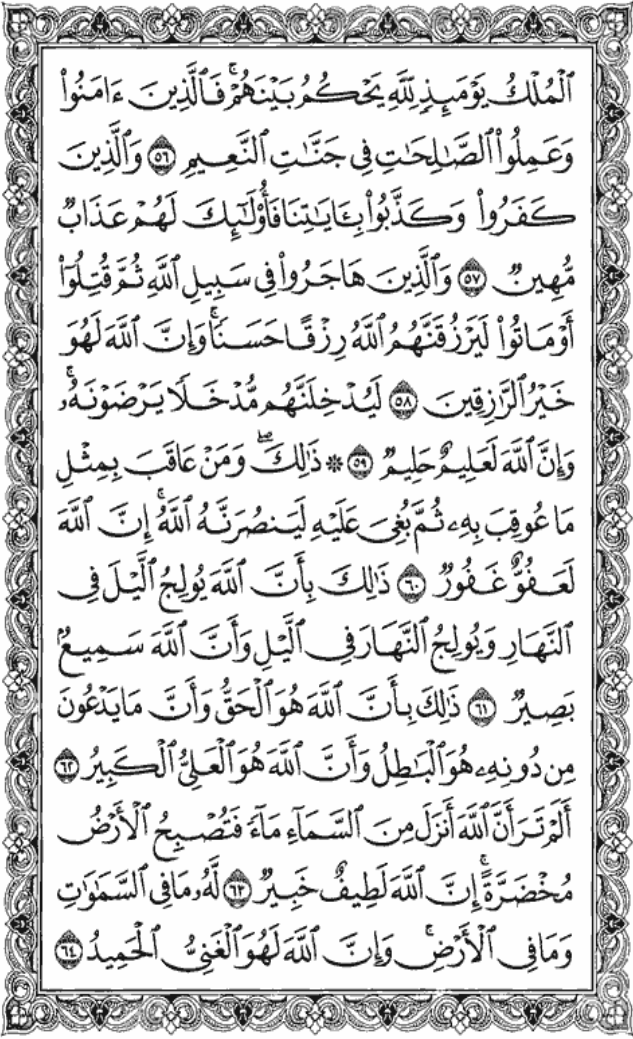 ٱلْمُلْكُ يَوْمَئِذٍ لِّلَّهِ يَحْكُمُ بَيْنَهُمْ ۚ فَٱلَّذِينَ ءَامَنُوا۟
وَعَمِلُوا۟ ٱلصَّٰلِحَٰتِ فِى جَنَّٰتِ ٱلنَّعِيمِ ٥٦ وَٱلَّذِينَ
كَفَرُوا۟ وَكَذَّبُوا۟ بِـَٔايَٰتِنَا فَأُو۟لَٰٓئِكَ لَهُمْ عَذَابٌ
مُّهِينٌ ٥٧ وَٱلَّذِينَ هَاجَرُوا۟ فِى سَبِيلِ ٱللَّهِ ثُمَّ قُتِلُوٓا۟
أَوْ مَاتُوا۟ لَيَرْزُقَنَّهُمُ ٱللَّهُ رِزْقًا حَسَنًا ۚ وَإِنَّ ٱللَّهَ لَهُوَ
خَيْرُ ٱلرَّٰزِقِينَ ٥٨ لَيُدْخِلَنَّهُم مُّدْخَلًا يَرْضَوْنَهُۥ ۚ
وَإِنَّ ٱللَّهَ لَعَلِيمٌ حَلِيمٌ ٥٩ ۞ ذَٰلِكَ ۖ وَمَنْ عَاقَبَ بِمِثْلِ
مَا عُوقِبَ بِهِۦ ثُمَّ بُغِىَ عَلَيْهِ لَيَنصُرَنَّهُ ٱللَّهُ ۚ إِنَّ ٱللَّهَ
لَعَفُوٌّ غَفُورٌ ٦٠ ذَٰلِكَ بِأَنَّ ٱللَّهَ يُولِجُ ٱلَّيْلَ فِى
ٱلنَّهَارِ وَيُولِجُ ٱلنَّهَارَ فِى ٱلَّيْلِ وَأَنَّ ٱللَّهَ سَمِيعٌۢ
بَصِيرٌ ٦١ ذَٰلِكَ بِأَنَّ ٱللَّهَ هُوَ ٱلْحَقُّ وَأَنَّ مَا يَدْعُونَ
مِن دُونِهِۦ هُوَ ٱلْبَٰطِلُ وَأَنَّ ٱللَّهَ هُوَ ٱلْعَلِىُّ ٱلْكَبِيرُ ٦٢
أَلَمْ تَرَ أَنَّ ٱللَّهَ أَنزَلَ مِنَ ٱلسَّمَآءِ مَآءً فَتُصْبِحُ ٱلْأَرْضُ
مُخْضَرَّةً ۗ إِنَّ ٱللَّهَ لَطِيفٌ خَبِيرٌ ٦٣ لَّهُۥ مَا فِى ٱلسَّمَٰوَٰتِ
وَمَا فِى ٱلْأَرْضِ ۗ وَإِنَّ ٱللَّهَ لَهُوَ ٱلْغَنِىُّ ٱلْحَمِيدُ ٦٤